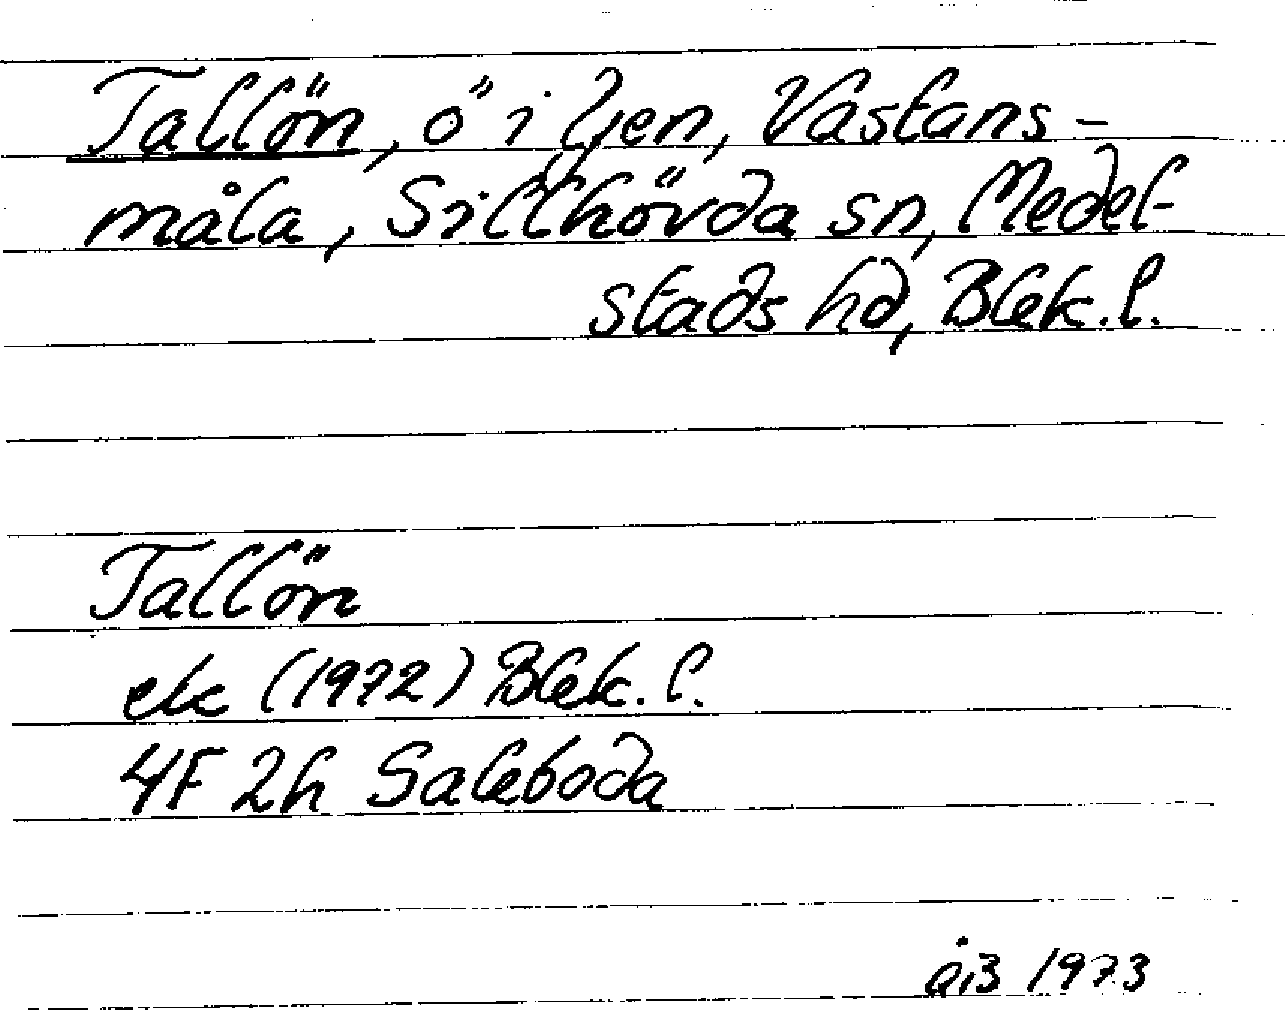 Tallön, ö i Ljen, Västans-
måla, Sillhövda sn, Medel-
stads hd, Blek. l.
Tallön
ek (1972) Blek. l.
4F 2h Saleboda
1973